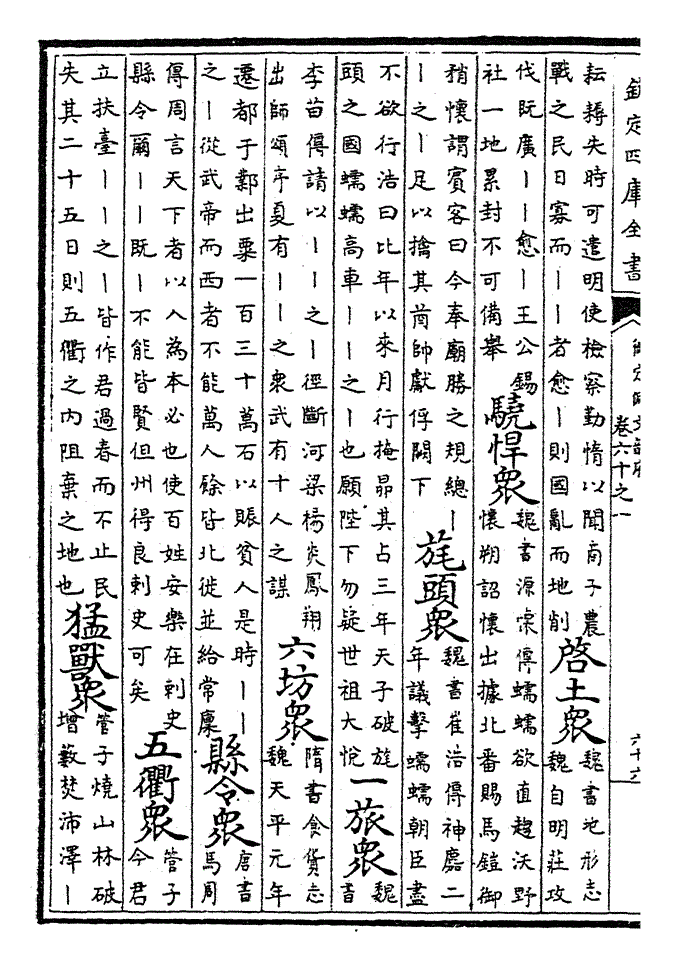 欽定四庫全書
卷六十之一
耘耨失時可遣明使檢察勤惰以聞商子農
戰之民日寡而丨丨者愈丨則國亂而地削
啓土衆
魏書地形志
魏自明莊攻
伐既廣丨丨愈丨王公錫
社一地累封不可備舉
驍悍衆
魏書源傳蠕蠕欲直趨沃野
懷朔詔懷出據北番賜馬鎧御
矟懷謂賓客曰今奉廟勝之規總丨
丨之丨足以擒其酋帥獻俘闕下
旄頭衆
魏書崔浩傳神䴥二
年議擊蠕蠕朝臣盡
不欲行浩曰比年以來月行掩昴其占三年天子破旄
頭之國蠕蠕高車丨丨之丨也願陛下勿疑世祖大悅
一旅衆
魏
書
李苗傳請以丨丨之丨徑斷河梁楊炎鳳翔
出師頌序夏有丨丨之衆武有十人之謀
六坊衆
隋書食貨志
魏天平元年
遷都于鄴出粟一百三十萬石以賑貧人是時丨丨
之丨從武帝而西者不能萬人餘皆北徙並給常廩
縣令衆
唐書
馬周
傳周言天下者以人為本必也使百姓安樂在刺史
縣令爾丨丨既丨不能皆賢但州得良刺史可矣
五衢衆
管子
今君
立扶臺丨丨之丨皆作君過春而不止民
失其二十五日則五衢之内阻棄之地也
猛獸衆
管子燒山林破
增藪焚沛澤丨